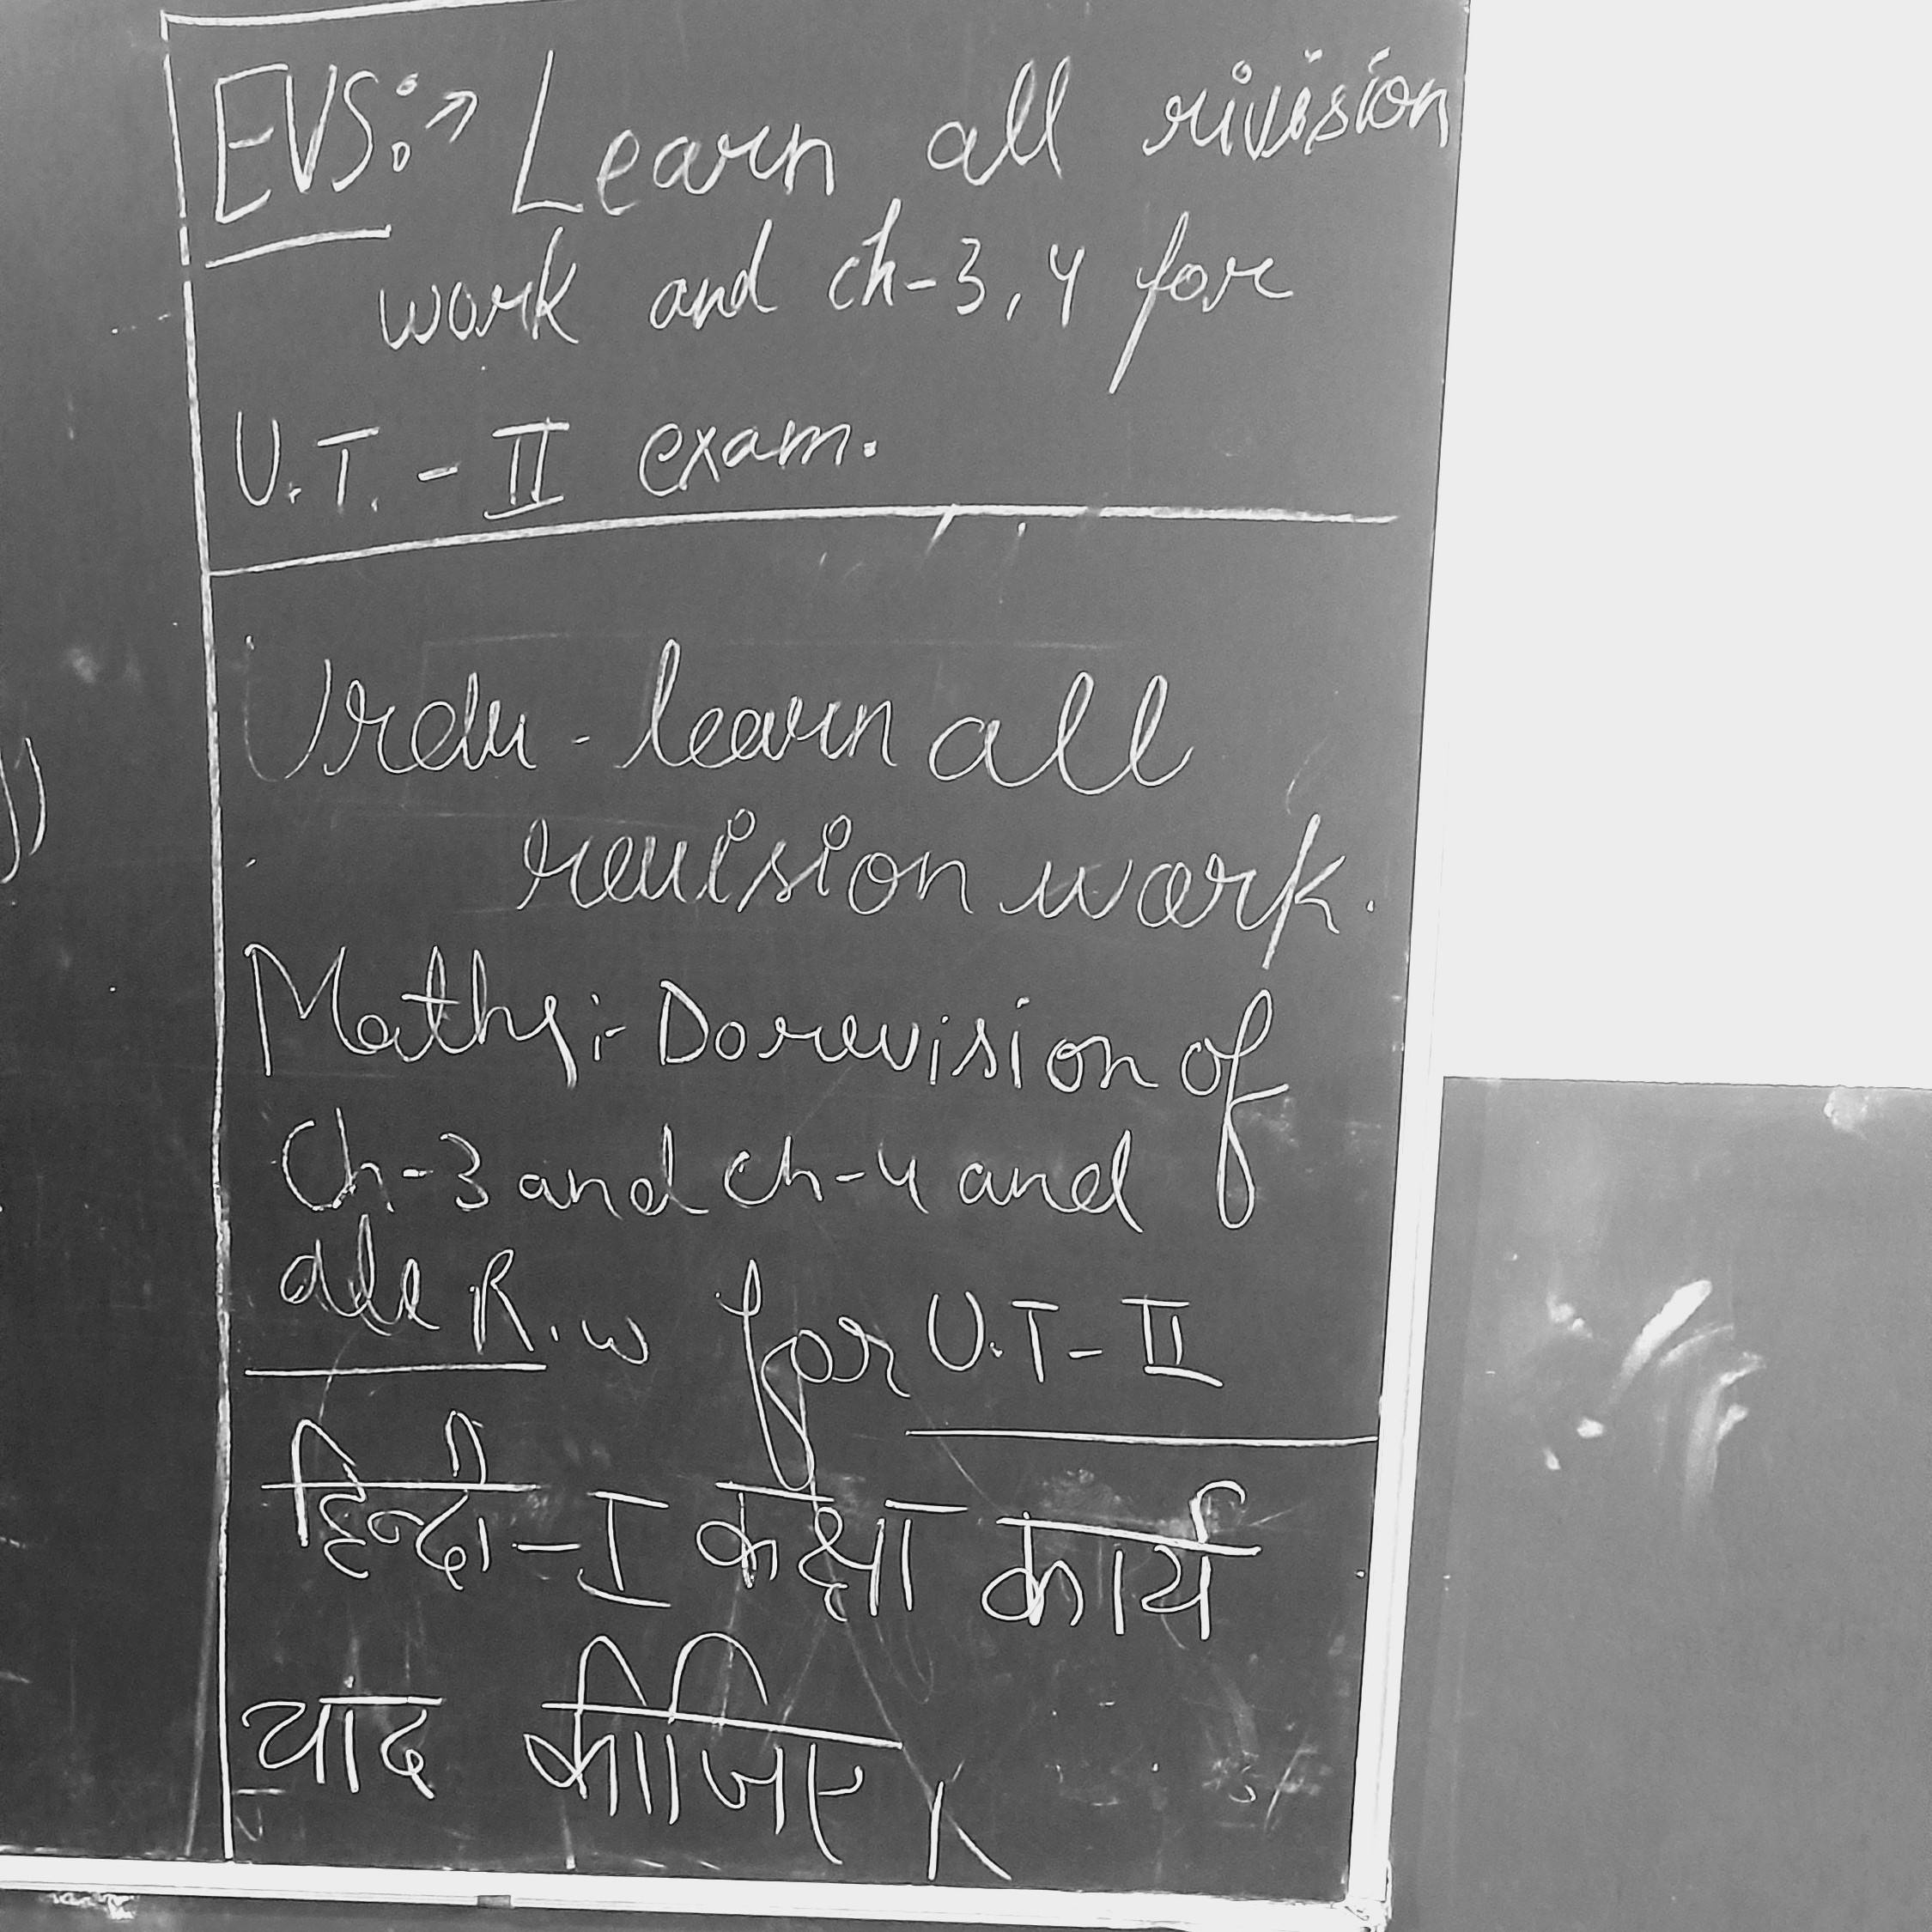 EVS:→ Learn all rivision
work and ch-3,4 for
U.T. - II exam.
Urdu - learn all
revision work.
Maths:- Do revision of
Ch-3 and ch-4 and
all R.w for U.T- II
हिन्दी - I कक्षा कार्य
याद कीजिए।